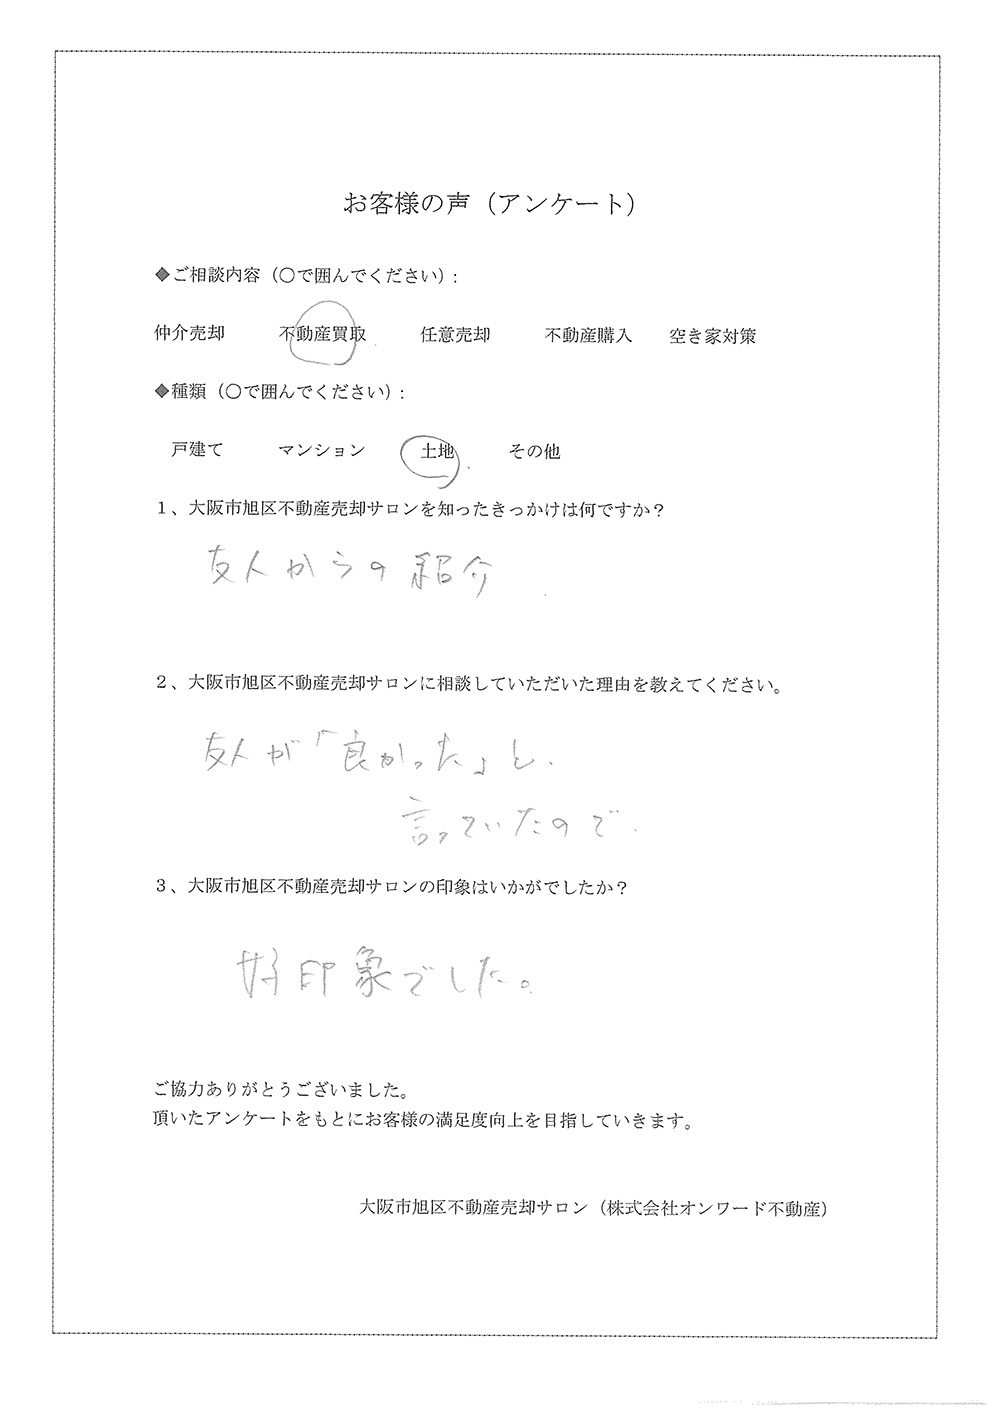 お客様の声（アンケート）
◆ご相談内容（〇で囲んでください）:
仲介売却　不動産買取　任意売却　不動産購入　空き家対策
◆種類（〇で囲んでください）:
戸建て　マンション　土地　その他
１、大阪市旭区不動産売却サロンを知ったきっかけは何ですか？
友人からの紹介
２、大阪市旭区不動産売却サロンに相談していただいた理由を教えてください。
友人が「良かった」と、
言っていたので。
３、大阪市旭区不動産売却サロンの印象はいかがでしたか？
好印象でした。
ご協力ありがとうございました。
頂いたアンケートをもとにお客様の満足度向上を目指していきます。
大阪市旭区不動産売却サロン（株式会社オンワード不動産）